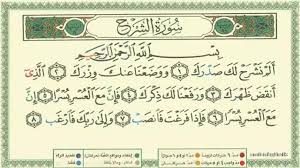 سُورَةُ الشَّرْحِ
بِسْمِ اللَّهِ الرَّحْمَٰنِ الرَّحِيمِ
أَلَمْ نَشْرَحْ لَكَ صَدْرَكَ ١ وَوَضَعْنَا عَنكَ وِزْرَكَ ٢ الَّذِي
أَنقَضَ ظَهْرَكَ ٣ وَرَفَعْنَا لَكَ ذِكْرَكَ ٤ فَإِنَّ مَعَ الْعُسْرِ يُسْرًا ٥
إِنَّ مَعَ الْعُسْرِ يُسْرًا ٦ فَإِذَا فَرَغْتَ فَانصَبْ ٧ وَإِلَىٰ رَبِّكَ فَارْغَب ٨